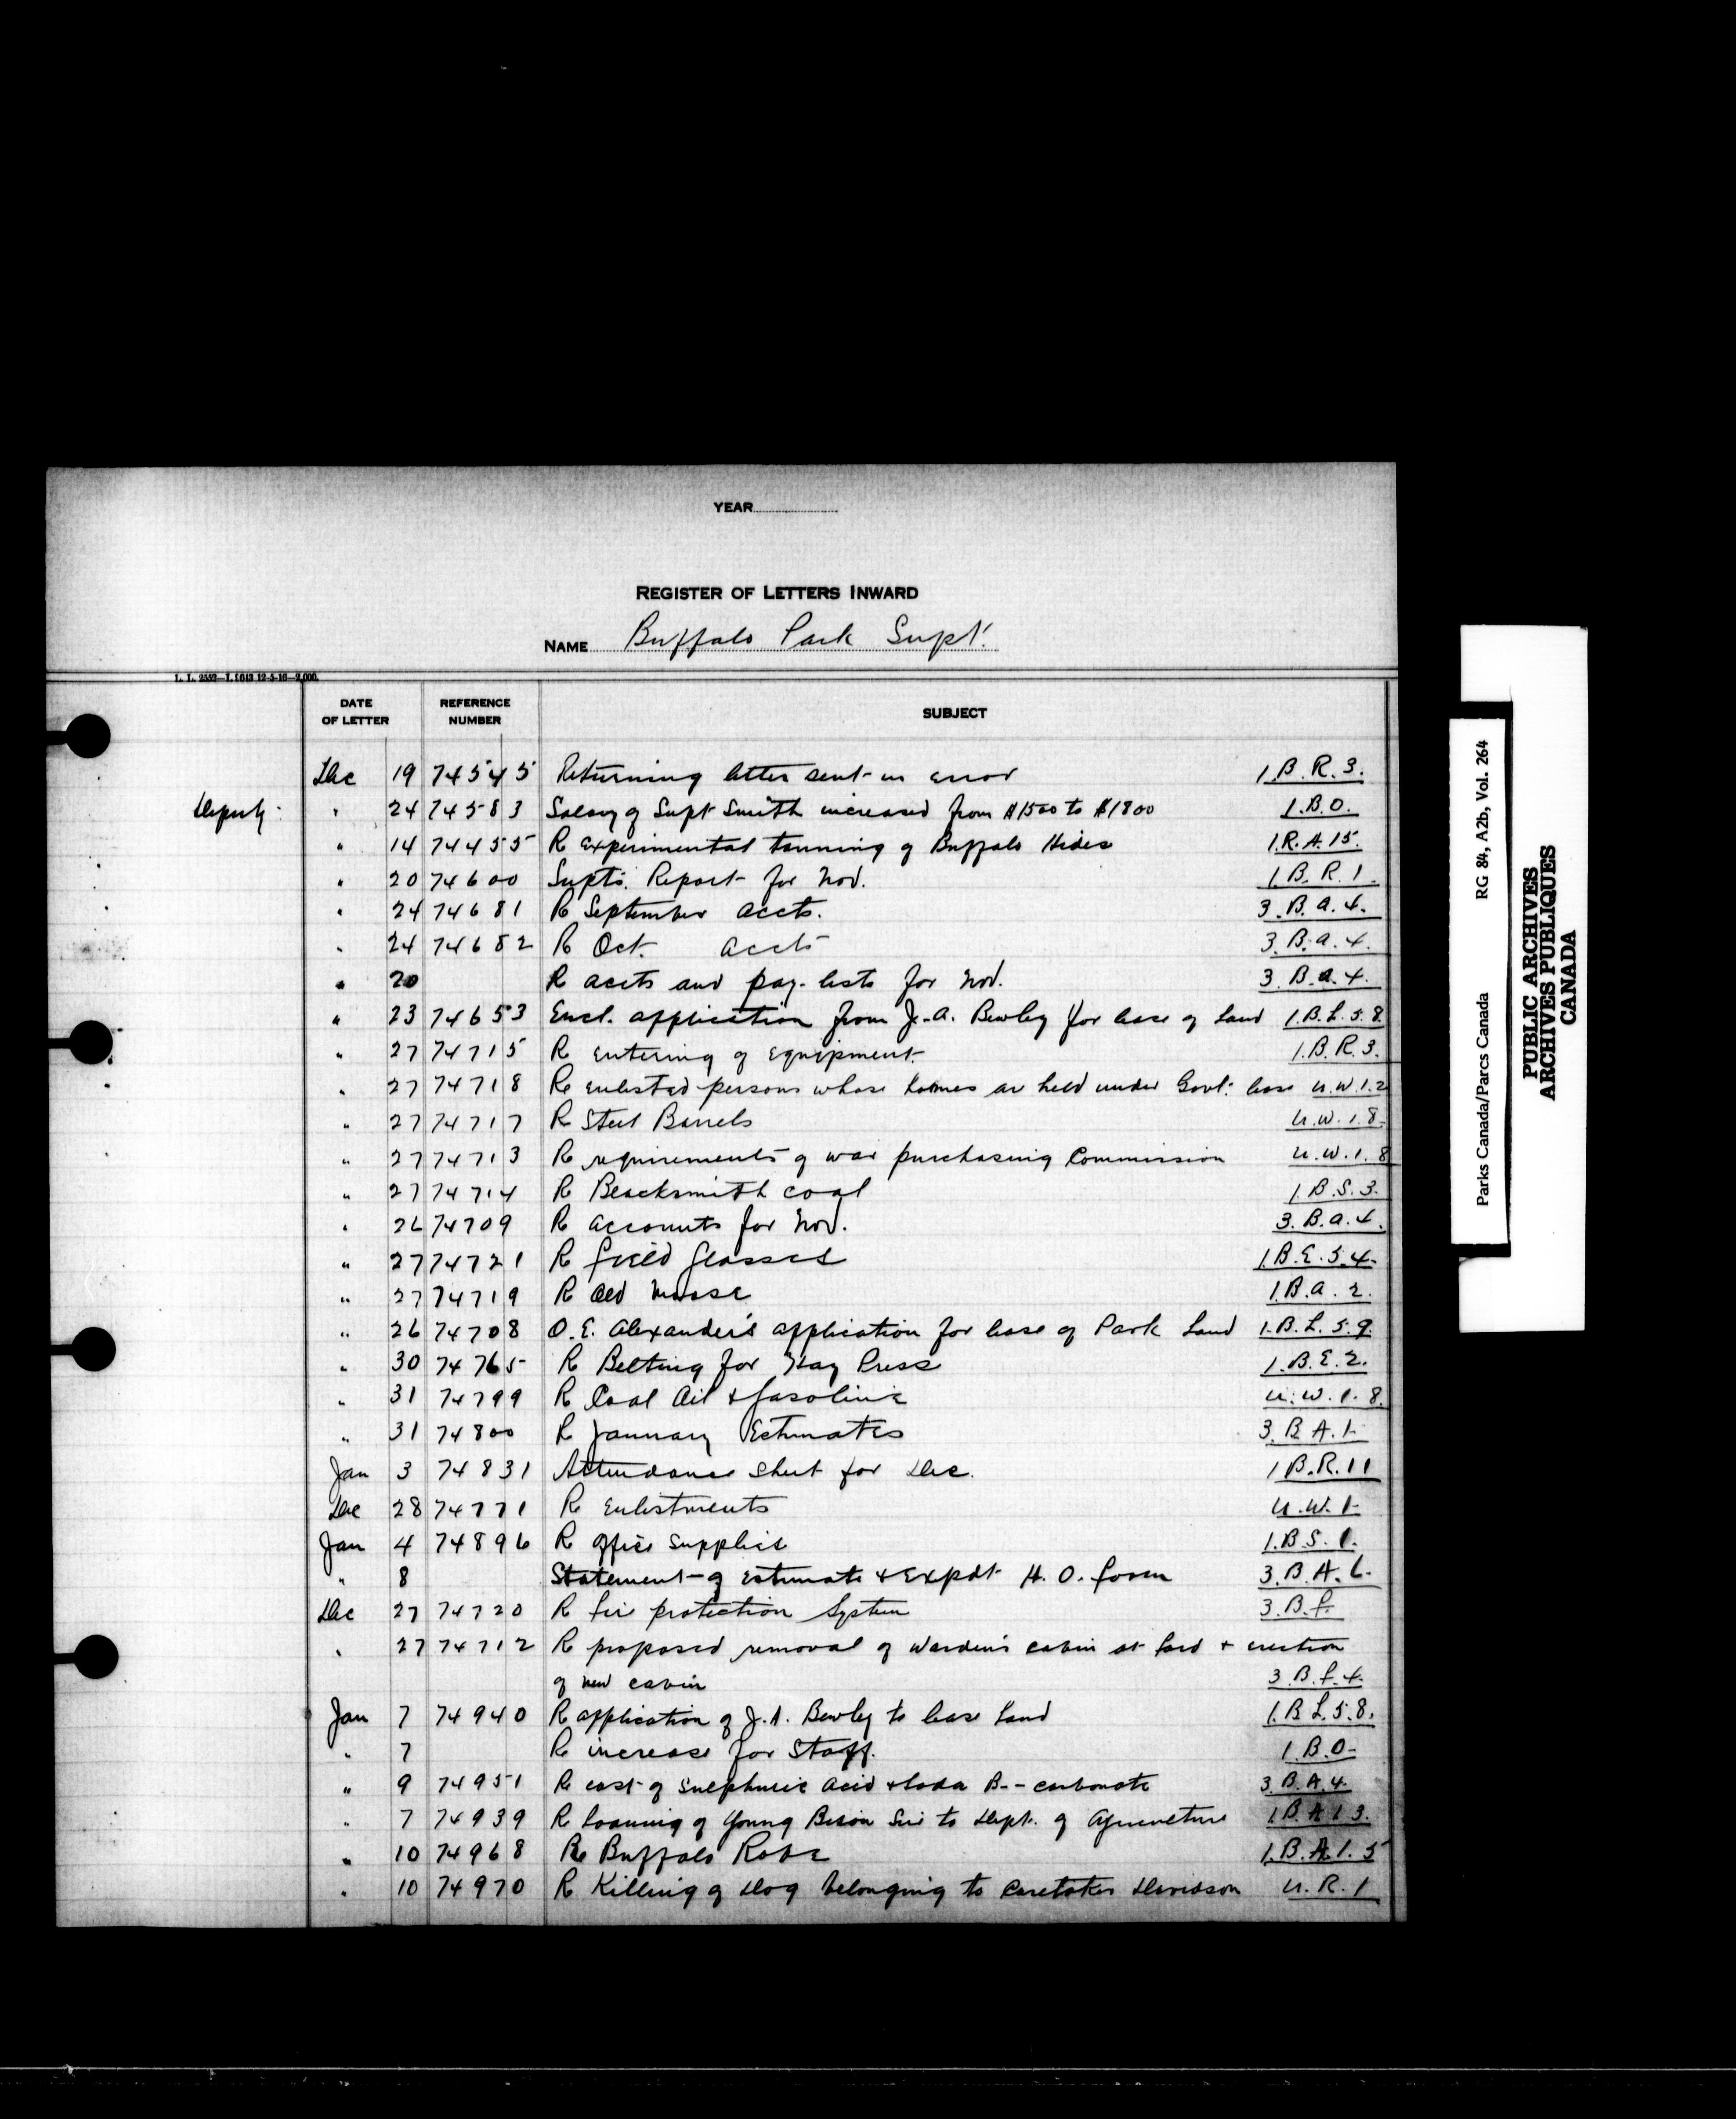 YEAR
REGISTER OF LETTERS INWARD
NAME Buffalo Park Supt.
L. L. 2552—L 1643 12-5-16—2,000.
DATE OF LETTER REFERENCE NUMBER SUBJECT
Dec 19 74545 Returning letter sent in error 1.B.R.3.
Deputy " 24 74583 Salary of Supt Smith increased from $1500 to $1800 1.B.O.
" 14 74455 R Experimental tanning of Buffalo Hides 1.R.A.15.
" 20 74600 Supts. Report for Nov. 1.B.R.1.
" 24 74681 R September accts. 3.B.a.4.
" 24 74682 R Oct. accts 3.B.a.4.
" 20 R accts and pay-lists for Nov. 3.B.a.4.
" 23 74653 Encl. application from J.A. Bewley for lease of Land 1.B.L.5.8.
" 27 74715 R entering of equipment 1.B.R.3.
" 27 74718 Re enlisted persons whose homes are held under Govt. lease U.W.1.2
" 27 74717 R Steel Barrels U.W.1.8.
" 27 74713 R requirements of war purchasing Commission U.W.1.8
" 27 74714 R Blacksmith coal 1.B.S.3.
" 26 74709 R accounts for Nov. 3.B.a.4.
" 27 74721 R field Glasses 1.B.E.5.4.
" 27 74719 R Old Moose 1.B.a.2.
" 26 74708 O.E. Alexander's application for lease of Park Land 1.B.L.5.9.
" 30 74765 R Belting for Hay Press 1.B.E.2.
" 31 74799 R Coal Oil & Gasoline U.W.1.8.
" 31 74800 R January Estimates 3.B.A.1.
Jan 3 74831 Attendance Sheet for Dec. 1.B.R.11
Dec 28 74771 R Enlistments U.W.1.
Jan 4 74896 R Office Supplies 1.B.S.1.
" 8 Statement of estimate & Expdt H.O. form 3.B.A.6.
Dec 27 74720 R fire protection System 3.B.f.
" 27 74712 R proposed removal of Warden's cabin at ford & erection
of new cabin 3.B.f.4.
Jan 7 74940 R application of J.A. Bewley to lease Land 1.B.L.5.8.
" 7 R increase for Staff. 1.B.O.
" 9 74951 R cost of Sulphuric Acid & Soda Bi-carbonate 3.B.A.4.
" 7 74939 R Loaning of Young Bison Sire to Dept. of Agriculture 1.B.A.1.3.
" 10 74968 Re Buffalo Robe 1.B.A.1.5
" 10 74970 R Killing of Dog belonging to Caretaker Davidson U.R.1
Parks Canada/Parcs Canada RG 84, A2b, Vol. 264
PUBLIC ARCHIVES
ARCHIVES PUBLIQUES
CANADA